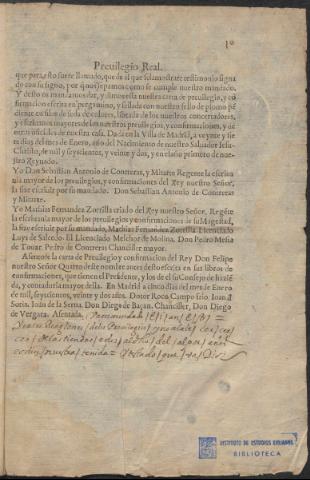 Preuilegio Real.
que para esto fuere llamado, que dé al que se la mostrare testimonio signa
do con su signo, por que sepamos como se cumple nuestro mandado.
Y desto os mandamos dar, y dimos esta nuestra carta de preuilegio, y cõ
firmacion escrita en pergamino, y sellada con nuestro sello de plomo pẽ
diente en filos de seda de colores, librada de los nuestros concertadores,
y escriuanos mayores de los nuestros preuilegios, y confirmaciones, y de
otros oficiales de nuestra casa. Dada en la Villa de Madrid, a veynte y sie
te dias del mes de Enero, año del Nacimiento de nuestro Saluador Iesu
Christo, de mil y seyscientos, y veinte y dos, y en el año primero de nue-
stro Reynado.
Yo Don Sebastian Antonio de Contreras, y Mitarte Regente la escriua
nia mayor de los preuilegios, y confirmaciones del Rey nuestro Señor,
la fize escriuir por su mandado. Don Sebastian Antonio de Contreras
y Mitarte.
Yo Mathias Fernandez Zorrilla criado del Rey nuestro Señor, Regẽte
la escriuania mayor de los preuilegios y confirmaciones de su Magestad,
la fize escriuir por su mandado, Mathias Fernandez Zorrilla. Licenciado
Luys de Salcedo. El Licenciado Melchor de Molina. Don Pedro Mesia
de Touar. Pedro de Contreras Chanciller mayor.
Assentose la carta de Preuilegio y confirmacion del Rey Don Felipe
nuestro Señor Quarto deste nombre antes desto escrita en sus libros de
confirmaciones, que tienen el Presidente, y los de su Consejo de haziẽ
da, y contaduria mayor della. En Madrid a cinco dias del mes de Enero
de mil, seyscientos, veinte y dos años. Dotor Roca Campo frio. Ioan de
Soria. Ioan de la Serna. Don Diego de Baçan. Chanciller, Don Diego
de Vergara. Asentada.
INSTITUTO DE ESTUDIOS RIOJANOS
BIBLIOTECA